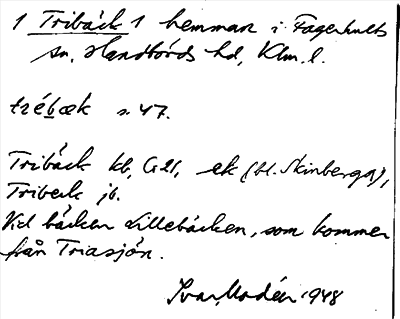 1 Tribäck 1 hemman i Fagerhults
sn, Handbörds hd, Klm. l.
trébæk s. 47.
Tribäck kb, GEK, ek (bl. Skinberga),
Tribeck jb.
Vid bäcken Lillebäcken, som kommer
från Triasjön.
Ivar Modéer 1948